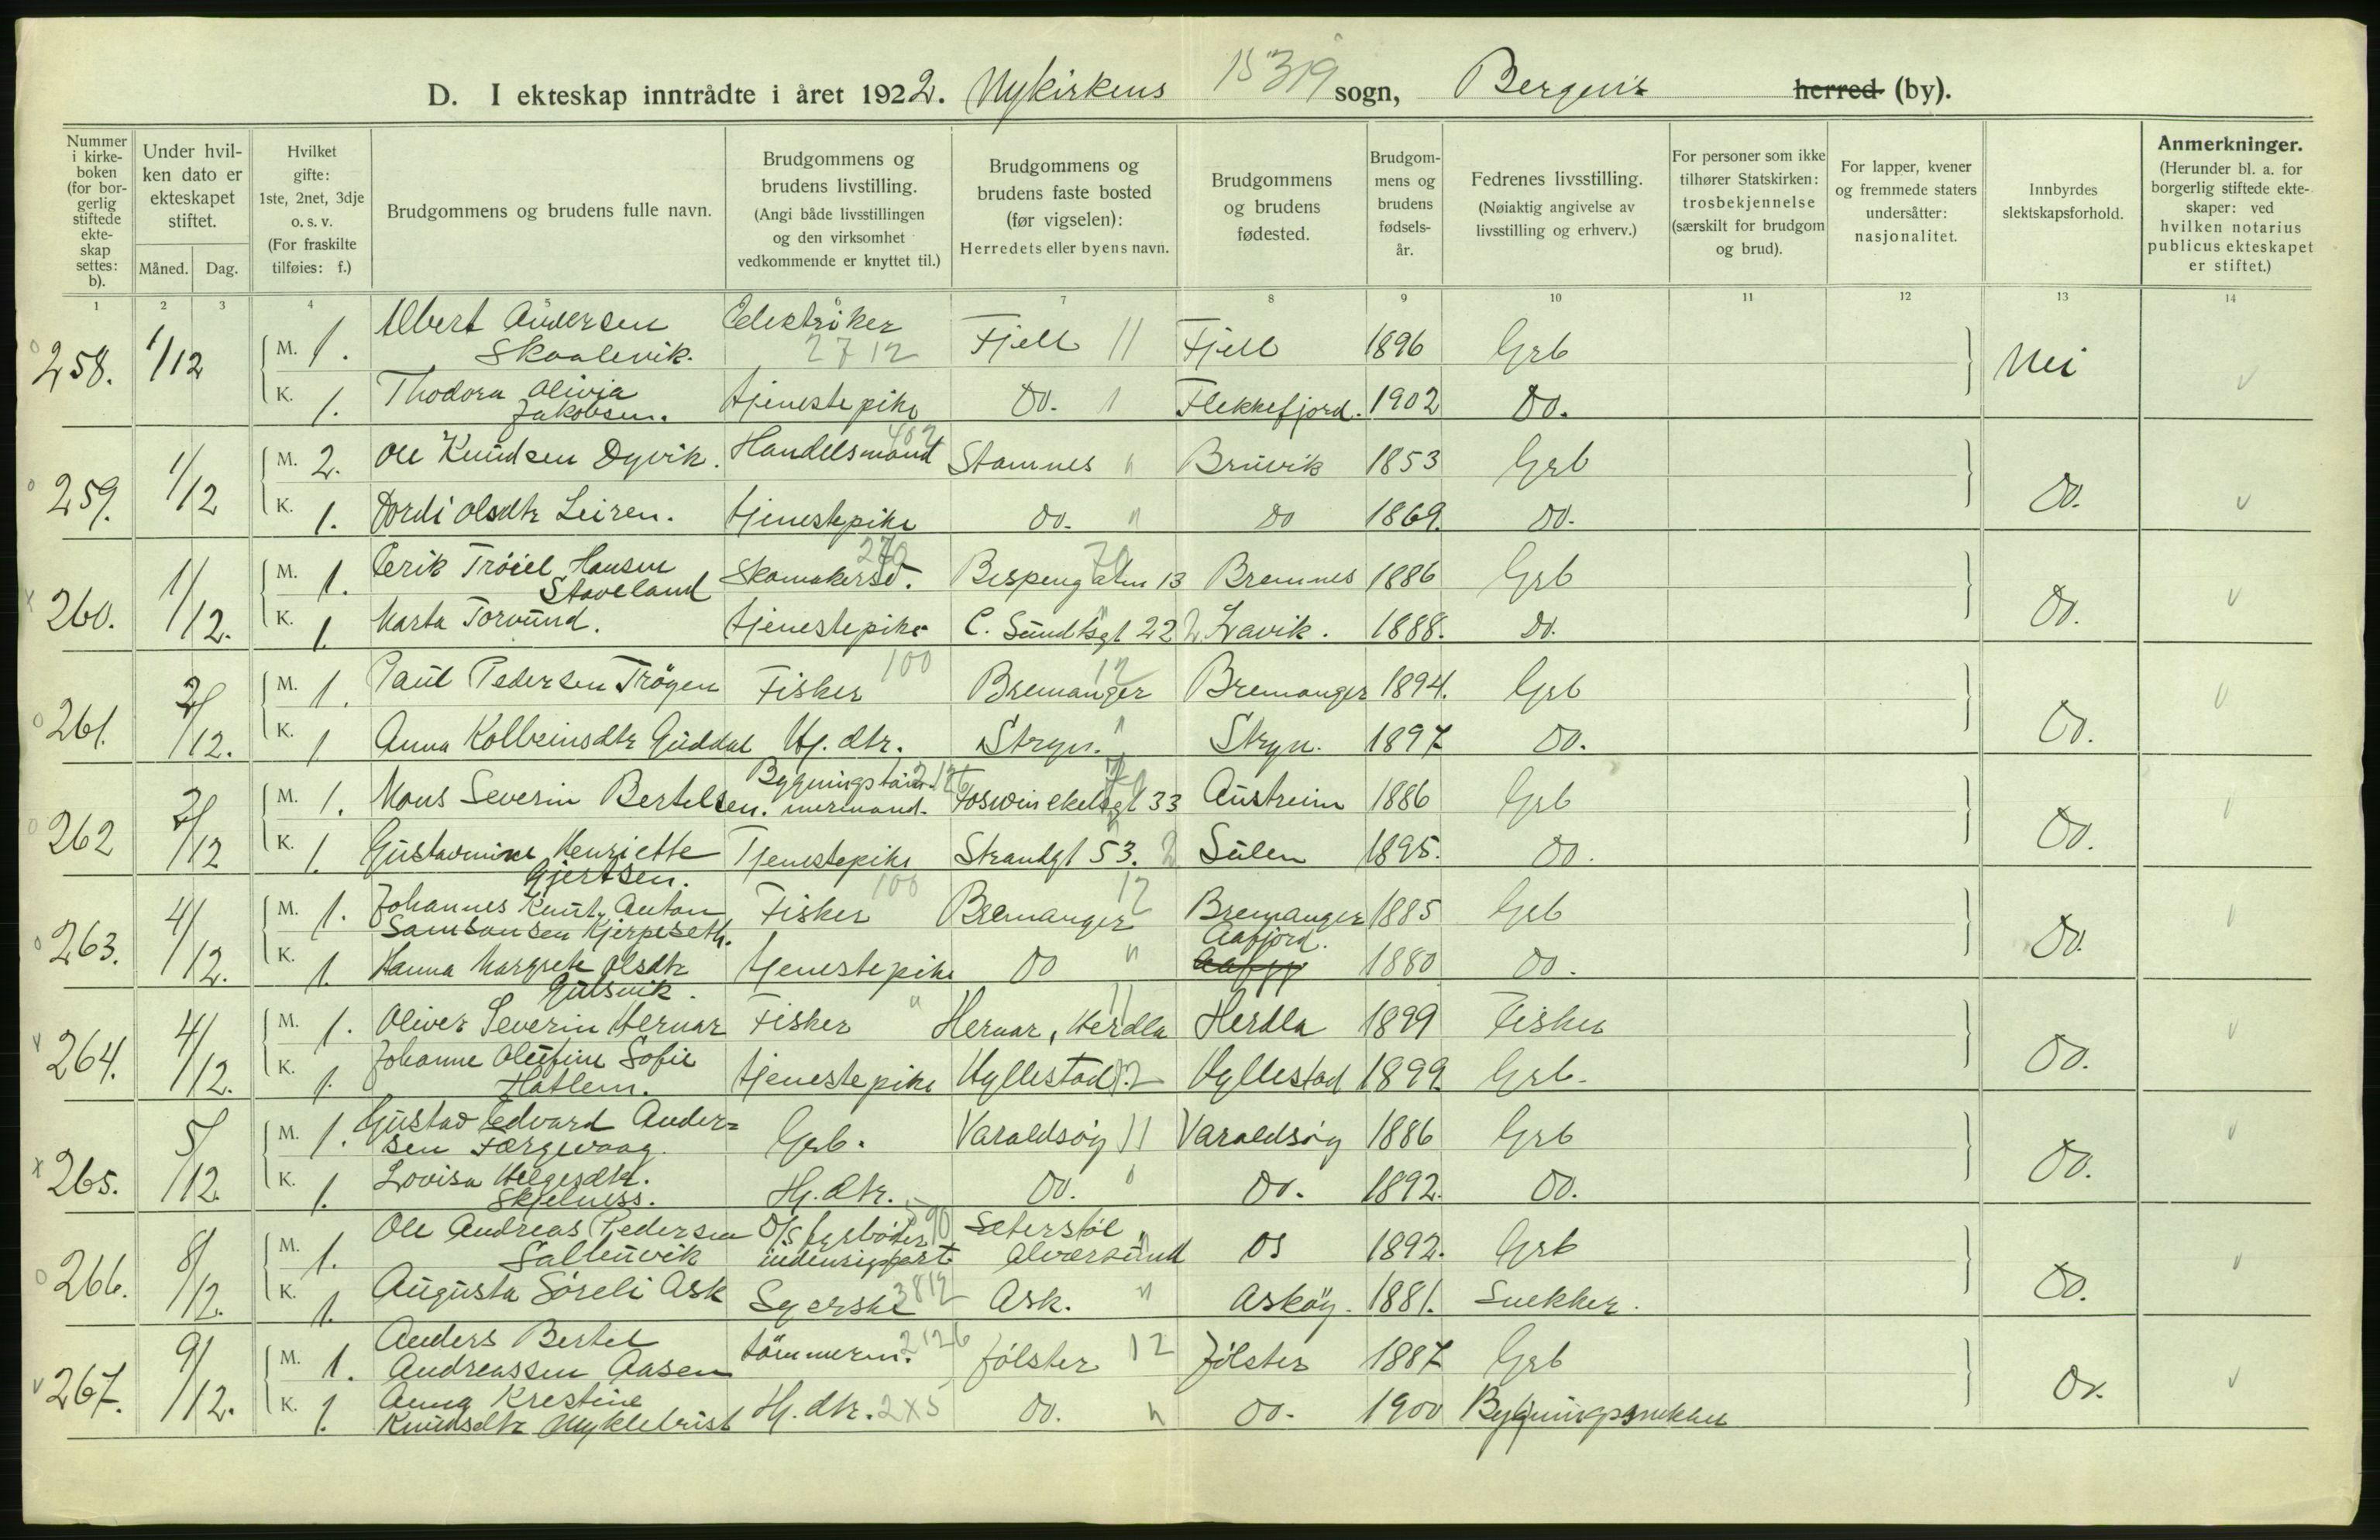 D. I ekteskap inntrådte i året 1922. Nykirkens 15319 sogn, Bergens herred (by).
Nummer i kirkeboken (for borgerlig stiftede ekteskap settes: b).
Under hvilken dato er ekteskapet stiftet.
Måned. Dag.
Hvilket gifte: 1ste, 2net, 3dje o. s. v. (For fraskilte tilføies: f.)
Brudgommens og brudens fulle navn.
Brudgommens og brudens livstilling. (Angi både livsstillingen og den virksomhet vedkommende er knyttet til.)
Brudgommens og brudens faste bosted (før vigselen): Herredets eller byens navn.
Brudgommens og brudens fødested.
Brudgommens og brudens fødsels-år.
Fedrenes livsstilling. (Nøiaktig angivelse av livsstilling og erhverv.)
For personer som ikke tilhører Statskirken: trosbekjennelse (særskilt for brudgom og brud).
For lapper, kvener og fremmede staters undersåtter: nasjonalitet.
Innbyrdes slektskapsforhold.
Anmerkninger. (Herunder bl. a. for borgerlig stiftede ekteskaper: ved hvilken notarius publicus ekteskapet er stiftet.)
1 2 3 4 5 7 8 9 10 11 12 13 14
258. 1/12 M. 1. Albert Andersen Skaalevik. Elektriker 2712 Fjell 11 Fjell 1896 Grb Nei
K. 1. Thodora Olivia Jakobsen. tjenestepike Do. Flekkefjord. 1902 Do.
259. 1/12 M. 2. Ole Knudsen Dyvik. Handelsmand Stamnes " Bruvik 1853 Grb Do.
K. 1. Jordi Olsdtr Leiren. tjenestepike Do. " Do 1869. Do.
260. 1/12. M. 1. Erik Tröiel Hansen Staveland Skomakersv. Bispengatn 13 Bremnes 1886 Grb Do.
K. 1. Marta Torvund. tjenestepike C. Sundtsgt 22 Lavik. 1888. Do.
261. 2/12. M. 1. Paul Pedersen Trögen Fisker 100 Bremanger 12 Bremanger 1894. Grb Do.
K. 1 Anna Kolbeinsdtr Guddal Hj. dtr. Stryn. " Stryn. 1897 Do.
262 2/12 M. 1. Mons Severin Bertelsen. Bygningstömmermand. Foswinckelsgt 33 Austreim 1886 Grb Do.
K. 1. Gustavmine Henriette Gjertsen. Tjenestepike Strandgt 53. Sulen 1895. Do.
263. 4/12. M. 1. Johannes Knut Anton Samsonsen Kjerpeseth. Fisker 100 Bremanger 12 Bremanger 1885 Grb Do.
K. 1. Hanna Margrete Olsdtr Gulsvik. tjenestepike Do " Aafjord. 1880 Do.
264. 4/12. M. 1. Oliver Severin Hernar Fisker " Hernar, Herdla 11 Herdla 1899 Fisker Do.
K. 1. Johanne Olufine Sofie Hatlem. tjenestepike Hyllestad. 12 Hyllestad 1899 Grb.
265. 5/12. M. 1. Gustav Edvard Andersen Færgevaag. Grb. Varaldsöy 11 Varaldsöy 1886 Grb Do.
K. 1. Lovisa Helgesdtr. Skjelness. Hj. dtr. Do. " Do. 1892. Do.
266. 8/12. M. 1. Ole Andreas Pedersen Salhusvik D/S fyrböter indenrigsfart Seterstöl Alversund Os 1892. Grb Do.
K. 1. Augusta Söreli Ask Syerske 3812 Ask. " Asköy. 1881. Snekker.
267. 9/12. M. 1. Anders Bertel Andreassen Aasen tömmerm. 2126 Jölster 12 Jölster 1887 Grb Do.
K. 1. Anna Krestine Knudsdtr Myklebust Hj. dtr. 2x5 Do. " Do. 1900 Bygningssnekker